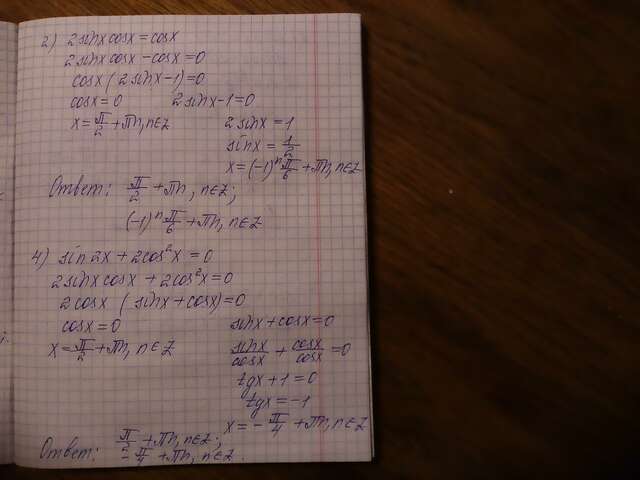 2) 2sinx cosx = cosx
2sinx cosx - cosx = 0
cosx (2sinx-1)=0
cosx = 0 2sinx-1=0
x = π/2 + πn, n∈Z 2sinx = 1
sinx = 1/2
x = (-1)ⁿ π/6 + πn, n∈Z
Ответ: π/2 + πn, n∈Z;
(-1)ⁿ π/6 + πn, n∈Z
4) sin2x + 2cos²x = 0
2sinx cosx + 2cos²x = 0
2cosx (sinx + cosx)=0
cosx = 0 sinx + cosx = 0
x = π/2 + πn, n∈Z sinx/cosx + cosx/cosx = 0
tgx + 1 = 0
tgx = -1
x = - π/4 + πn, n∈Z
Ответ: π/2 + πn, n∈Z;
- π/4 + πn, n∈Z.